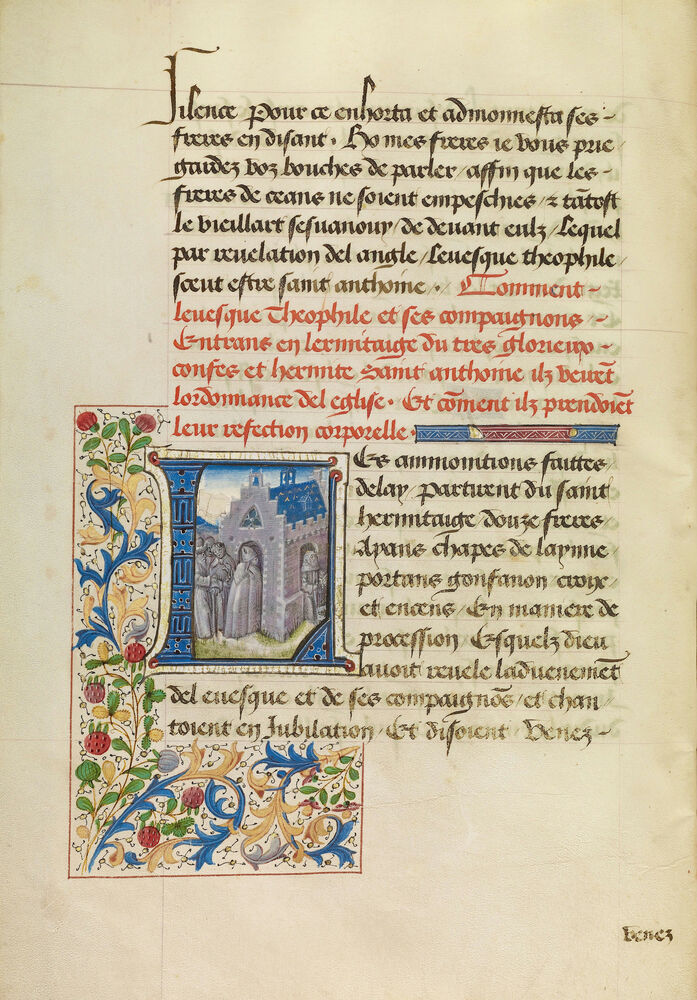 Silence Pour ce enhorta et admonnesta ses -
freres en disant · Ho mes freres ie vous prie
gardez voz bouches de parler / affin que les -
freres de ceans ne soient empeschies / ⁊ tātost
le vieillart sesuanouy / de deuant eulz / Lequel
par reuelation del angle / Leuesque theophile /
sceut estre saint anthoine · Comment -
leuesque Theophile et ses compaignons / -
Entrans en lermitaige du tres glorieux -
confes et hermite Saint anthoine ilz veirēt
lordonnance del eglise · Et cōment ilz prendoient
leur refection corporelle ·
LEs ammonitions faittes /
delay partirent du saint
hermitaige douze freres /
Ayans chapes de laynne
portans gonfanon croix /
et encens / En maniere de
procession / Esquelz dieu
auoit reuele laduenemēt
del euesque et de ses compaignōs / et chan
toient en Jubilation / Et disoient / Benez -
benez